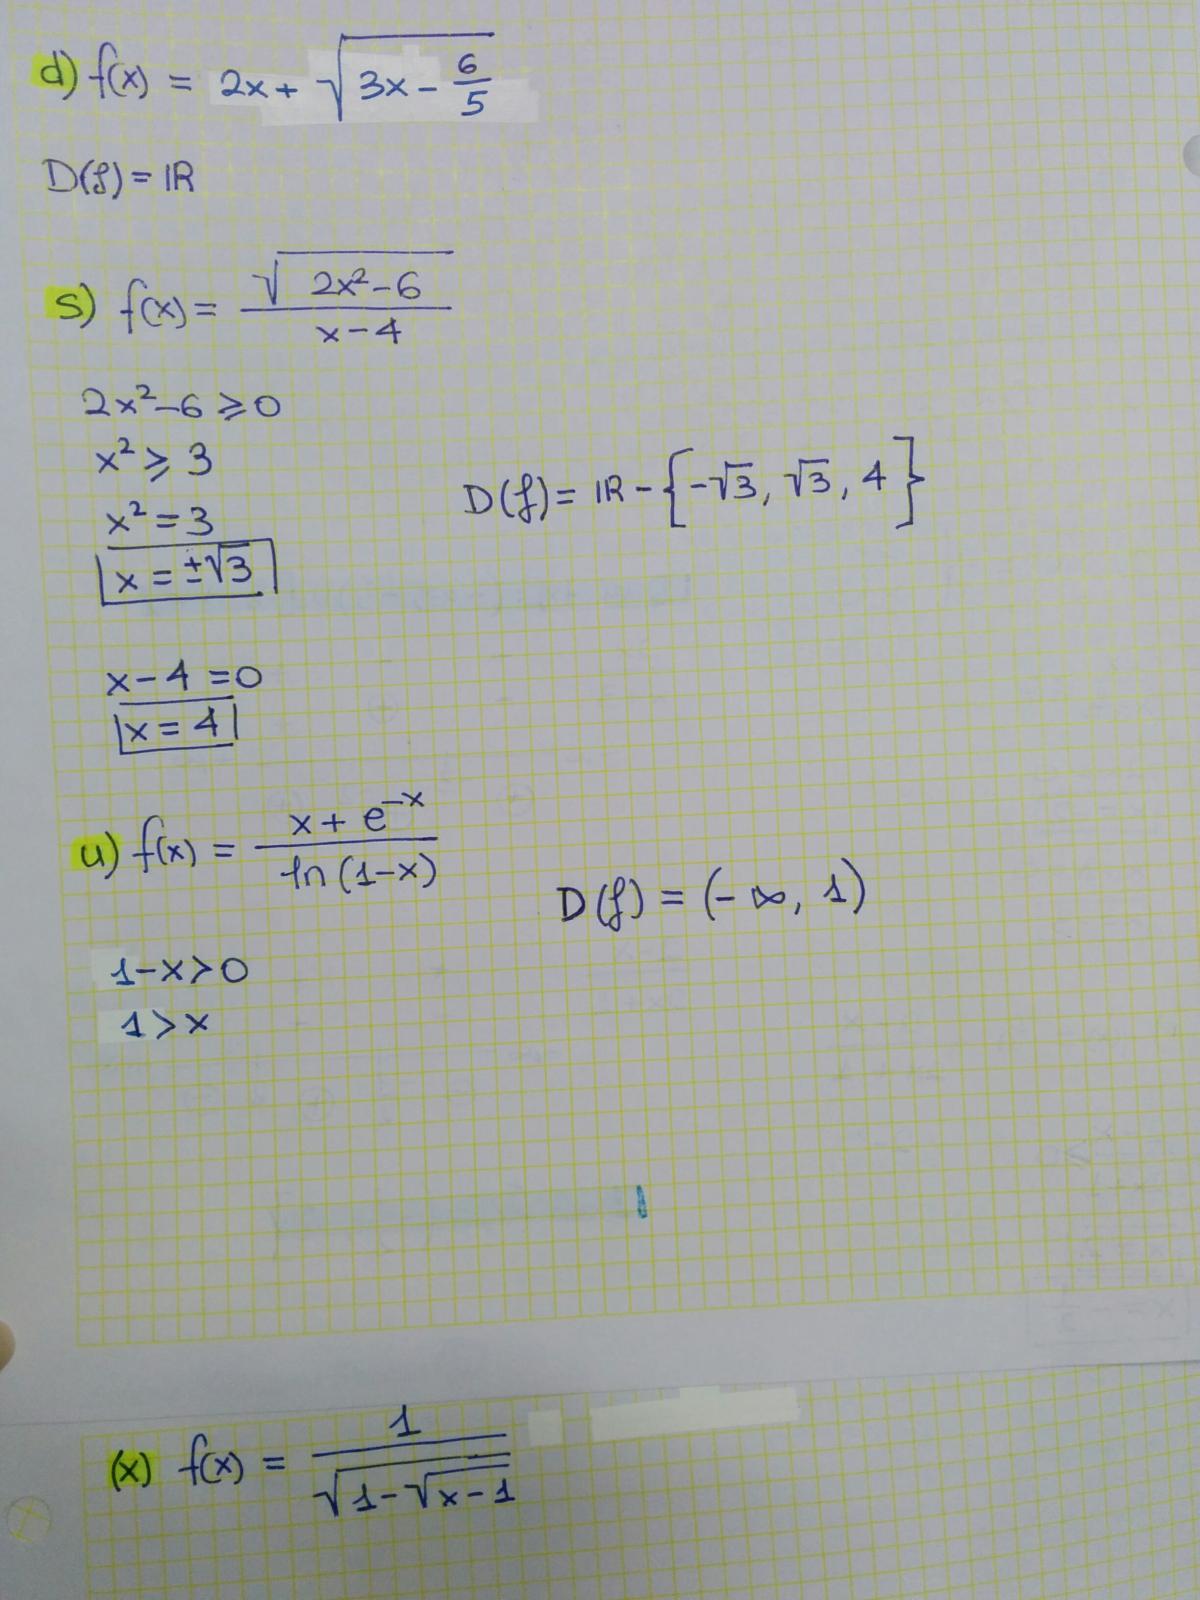 d) f(x) = 2x + √(3x - 6/5)
D(f) = ℝ
s) f(x) = √(2x² - 6) / (x - 4)
2x² - 6 ⩾ 0
x² ⩾ 3
x² = 3
x = ±√3
D(f) = ℝ - {-√3, √3, 4}
x - 4 = 0
x = 4
u) f(x) = (x + e^(-x)) / ln(1-x)
D(f) = (-∞, 1)
1 - x > 0
1 > x
(x) f(x) = 1 / √(1 - √(x - 1))